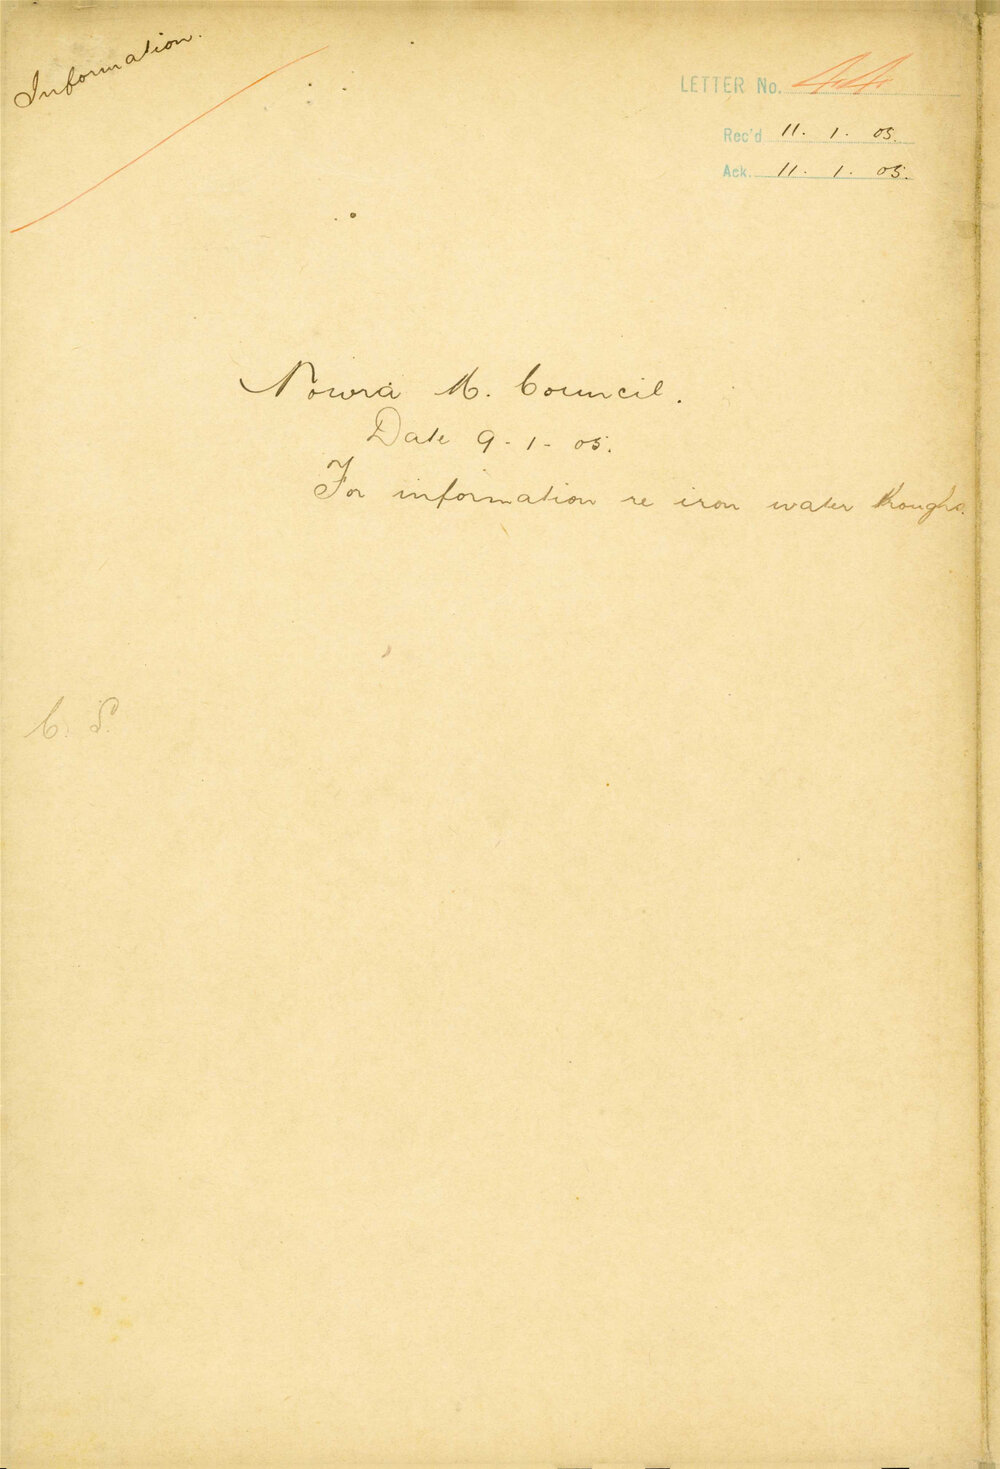 Information.
LETTER No. 44
Rec'd 11. 1. 05.
Ack. 11. 1. 05.
Nowra M. Council.
Date 9-1-05.
For information re iron water troughs.
C. S.